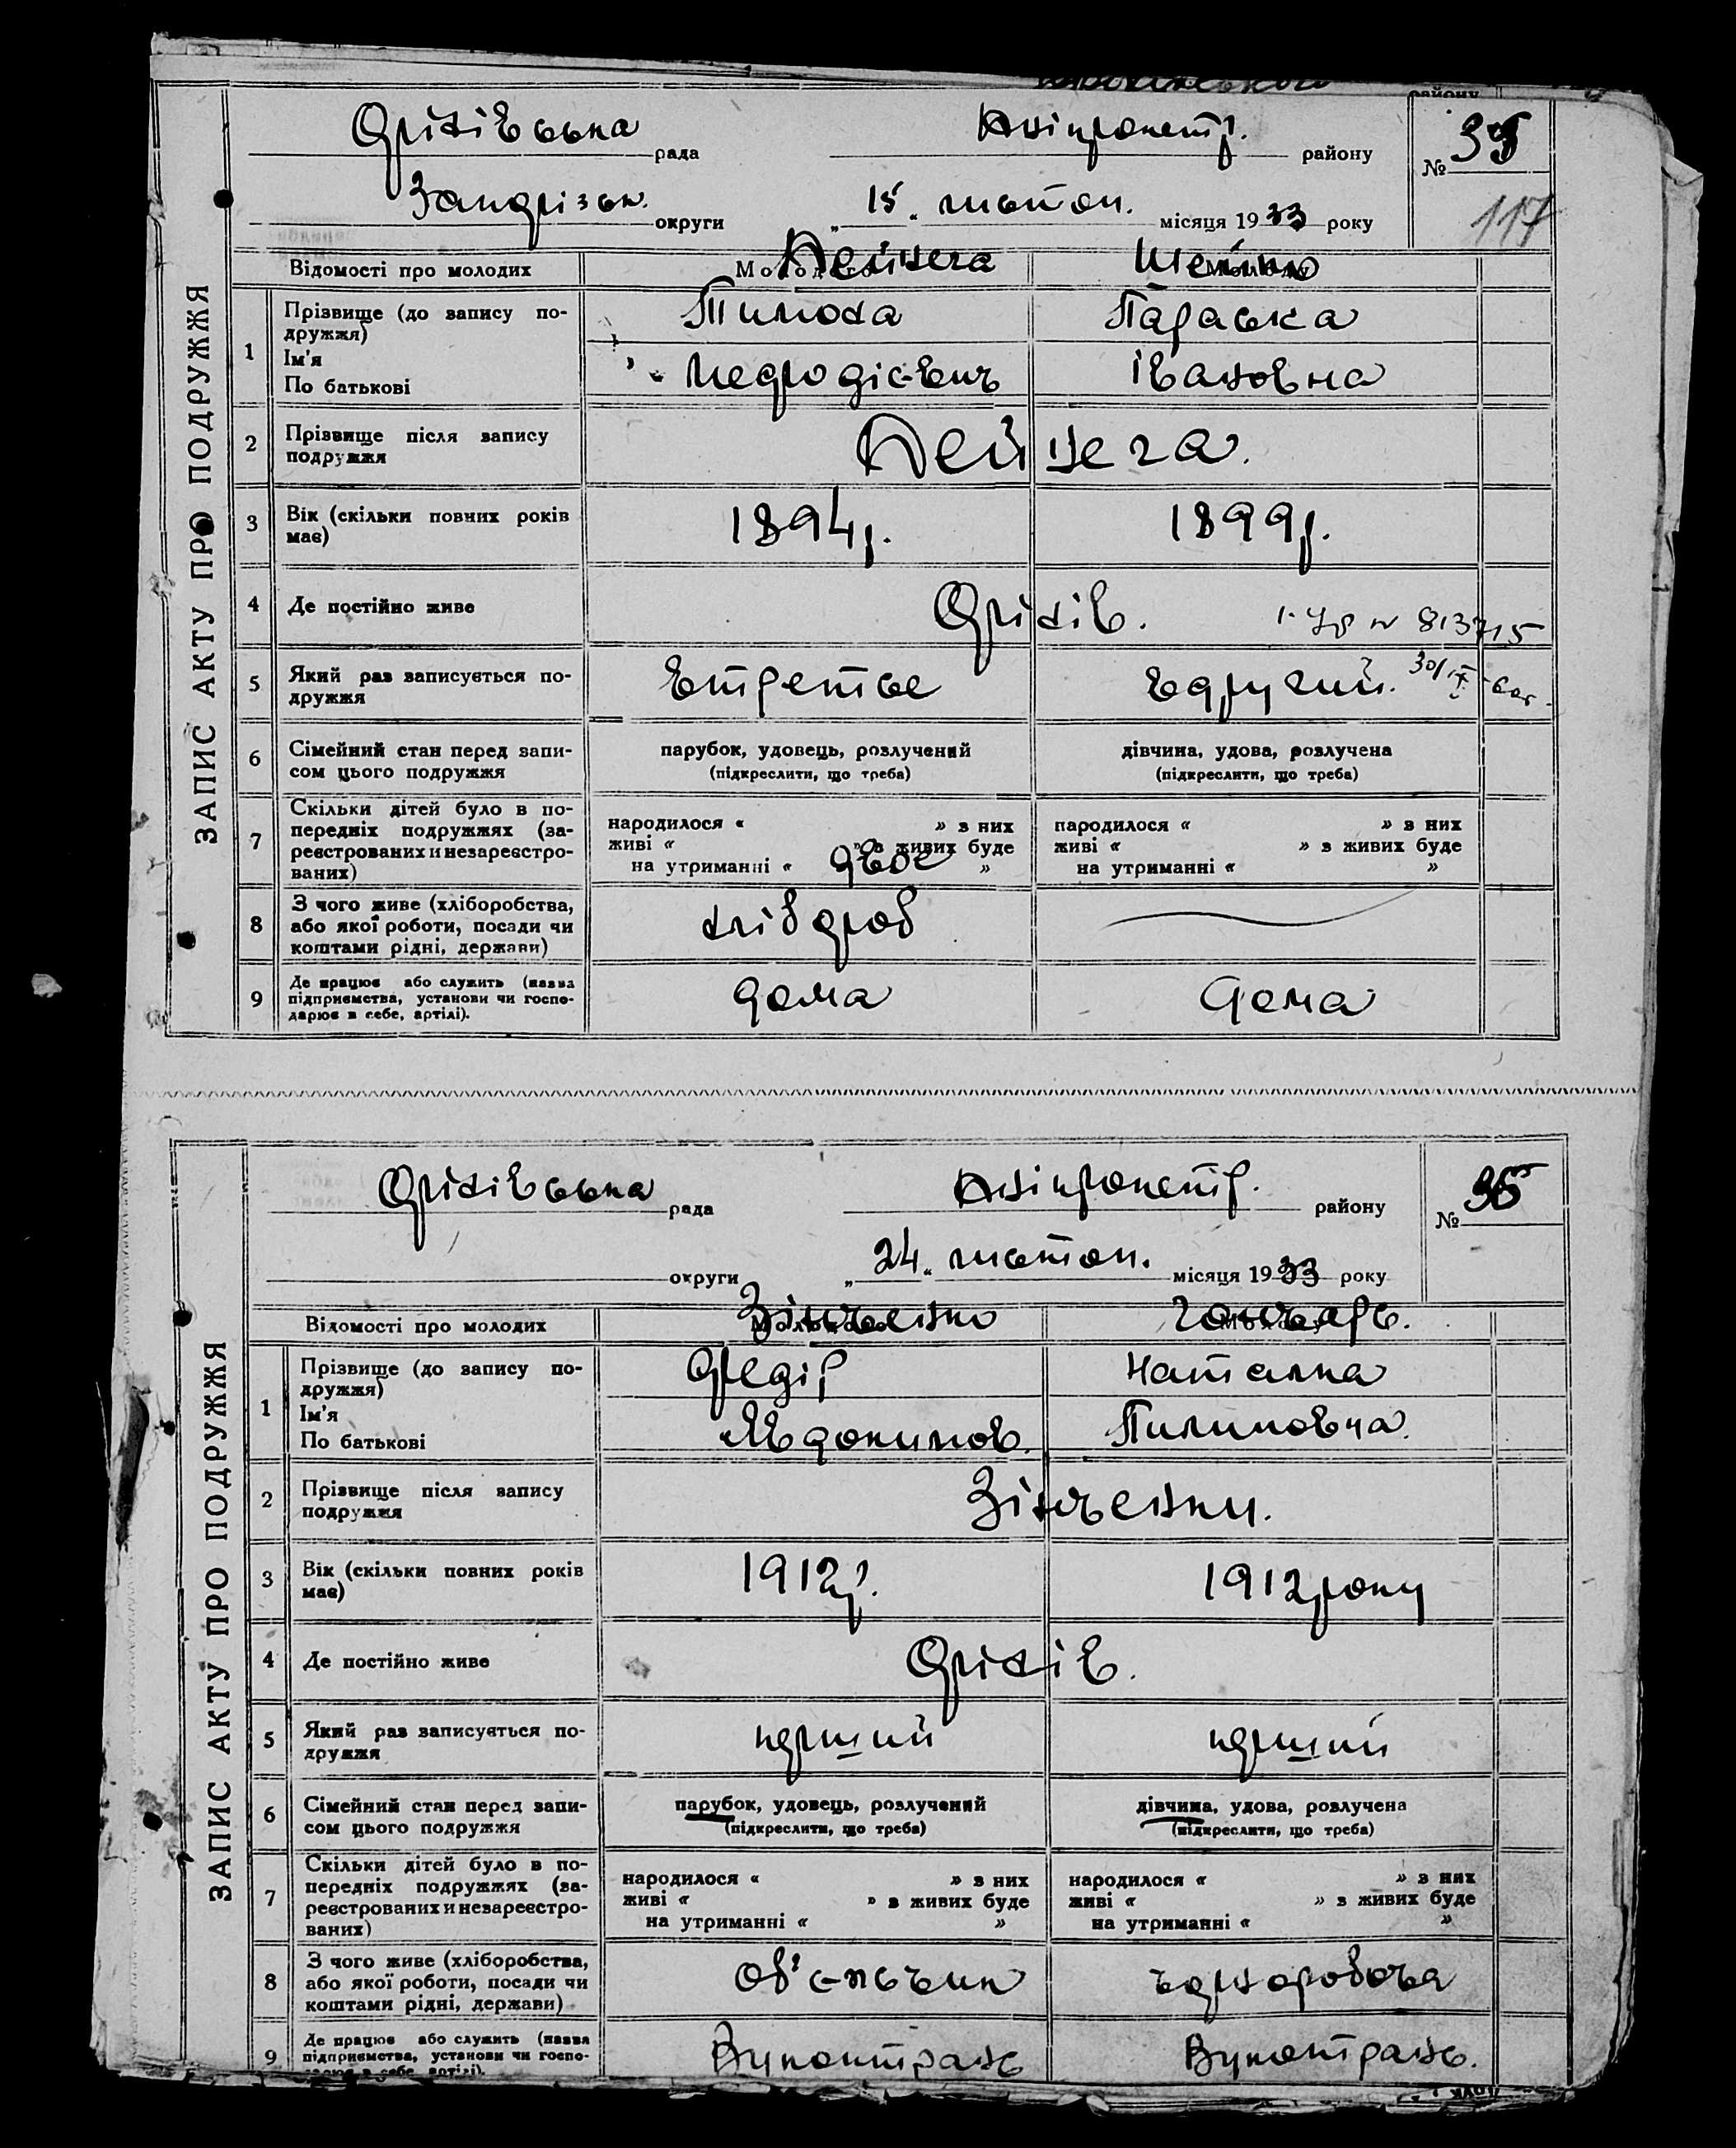 району
Оріхівська рада Дніпропетр. району № 35
Запорізьк. округи „ 15 „ листоп. місяця 1933 року
117
Відомості про молодих
Шейко
1 Прізвище (до запису по-
дружжя)
Ім'я
По батькові
Тимоха Параська
Медродієвич Івановна
2 Прізвище після запису
подружжя
3 Вік (скільки повних років
має)
1894р. 1899р.
4 Де постійно живе
Оріхів.
№ 813715
5 Який раз записується по-
дружжя
втретє вдругий.
30/IX
6 Сімейний стан перед запи-
сом цього подружжя
парубок, удовець, розлучений дівчина, удова, розлучена
(підкреслити, що треба) (підкреслити, що треба)
7 Скільки дітей було в по-
передніх подружжях (за-
реєстрованих и незареєстро-
ваних)
народилося « » з них народилося « » з них
живі « » з живих буде живі « » з живих буде
на утриманні « двое » на утриманні « »
8 З чого живе (хліборобства,
або якої роботи, посади чи
коштами рідні, держави)
хлібороб
9 Де працює або служить (назва
підприємства, установи чи госпо-
дарює в себе, артілі).
дома дома
ЗАПИС АКТУ ПРО ПОДРУЖЖЯ
Оріхівська рада Дніпропетр. району № 36
округи „ 24 „ листоп. місяця 1933 року
Відомості про молодих
Зінченко Гончарь.
1 Прізвище (до запису по-
дружжя)
Ім'я
По батькові
Федір Наталка
Явдокимов. Пилиповна
2 Прізвище після запису
подружжя
Зінченки.
3 Вік (скільки повних років
має)
1912р. 1912 року
4 Де постійно живе
Оріхів.
5 Який раз записується по-
дружжя
перший перший
6 Сімейний стан перед запи-
сом цього подружжя
парубок, удовець, розлучений дівчина, удова, розлучена
(підкреслити, що треба) (підкреслити, що треба)
7 Скільки дітей було в по-
передніх подружжях (за-
реєстрованих и незареєстро-
ваних)
народилося « » з них народилося « » з них
живі « » з живих буде живі « » з живих буде
на утриманні « » на утриманні « »
8 З чого живе (хліборобства,
або якої роботи, посади чи
коштами рідні, держави)
об'єжчик чорноробоча
9 Де працює або служить (назва
підприємства, установи чи госпо-
дарює в себе, артілі).
ЗАПИС АКТУ ПРО ПОДРУЖЖЯ